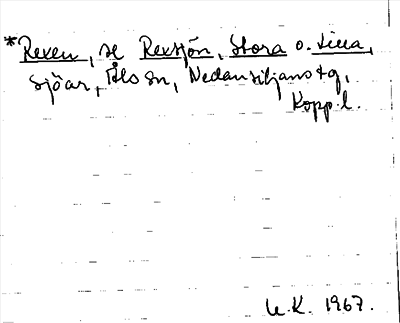 *Rexen, se Rexsjön, Stora o. Lilla,
sjöar, Åls sn, Nedansiljans tg,
Kopp. l.
U.K. 1967.